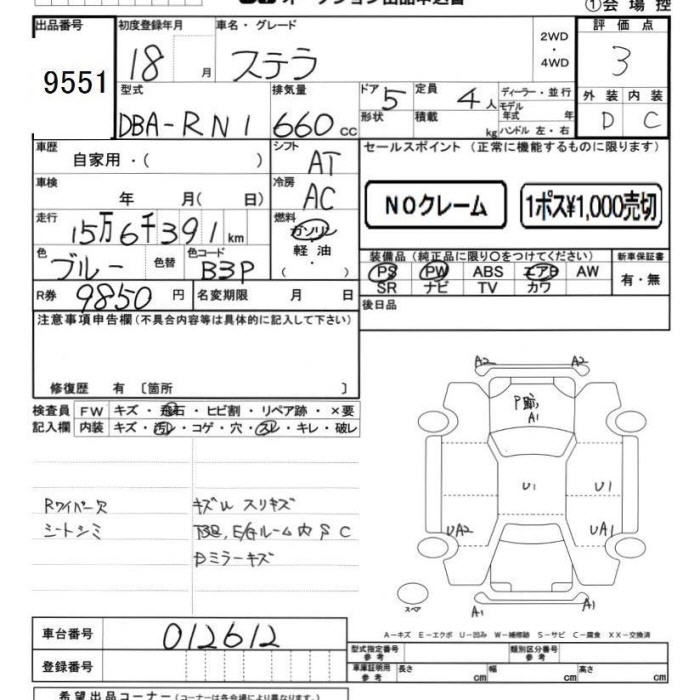 オークション出品申込書
①会場控
出品番号 初度登録年月 車名・グレード 2WD ・ 4WD 評価点
9551 18 月 ステラ 3
型式 排気量 ドア 定員 ディーラー・並行 外装 内装
DBA-RN1 660 cc 5 4人 モデル年式 年 D C
形状 積載 kg ハンドル 左・右
車歴 自家用・( ) シフト AT セールスポイント(正常に機能するものに限ります)
車検 年 月( 日) 冷房 AC NOクレーム 1ポス¥1,000売切
走行 15万6千391km 燃料 ガソリン 軽油 ・( )
色 ブルー 色替 色コード B3P 装備品(純正品に限り○をつけてください) 新車保証書
PS PW ABS エアB AW 有・無
SR ナビ TV カワ
R券 9850円 名変期限 月 日 後日品
注意事項申告欄(不具合内容等は具体的に記入して下さい)
修復歴 有 [箇所 ]
検査員 FW キズ・飛石・ヒビ割・リペア跡・×要
記入欄 内装 キズ・汚レ・コゲ・穴・スレ・キレ・破レ
A2 A2
P跡 A1
U1 U1
UA2 UA1
Rワイパー欠 キズ凹スリキズ
シートシミ 下回,E/Gルーム内 S C
Dミラーキズ
スペア A1 A1
A-キズ E-エクボ U-凹み W-補修跡 S-サビ C-腐食 XX-交換済
車台番号 012612 型式指定番号 参考 類別区分番号 参考
登録番号 車庫証明用 参考 長さ cm 幅 cm 高さ cm
希望出品コーナー(コーナーは各会場により異なります。)